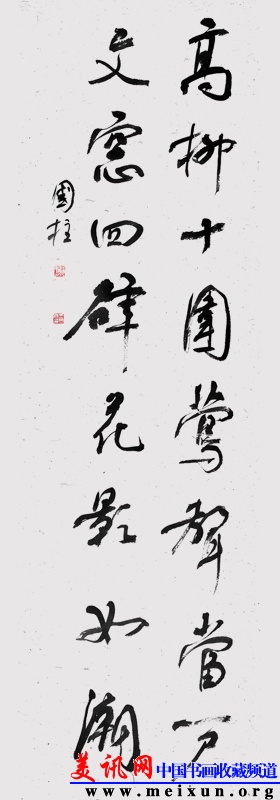 高柳十圍鶯聲當户
文窓四壁花影如潮
國柱
美讯网 中国书画收藏频道
www.meixun.org